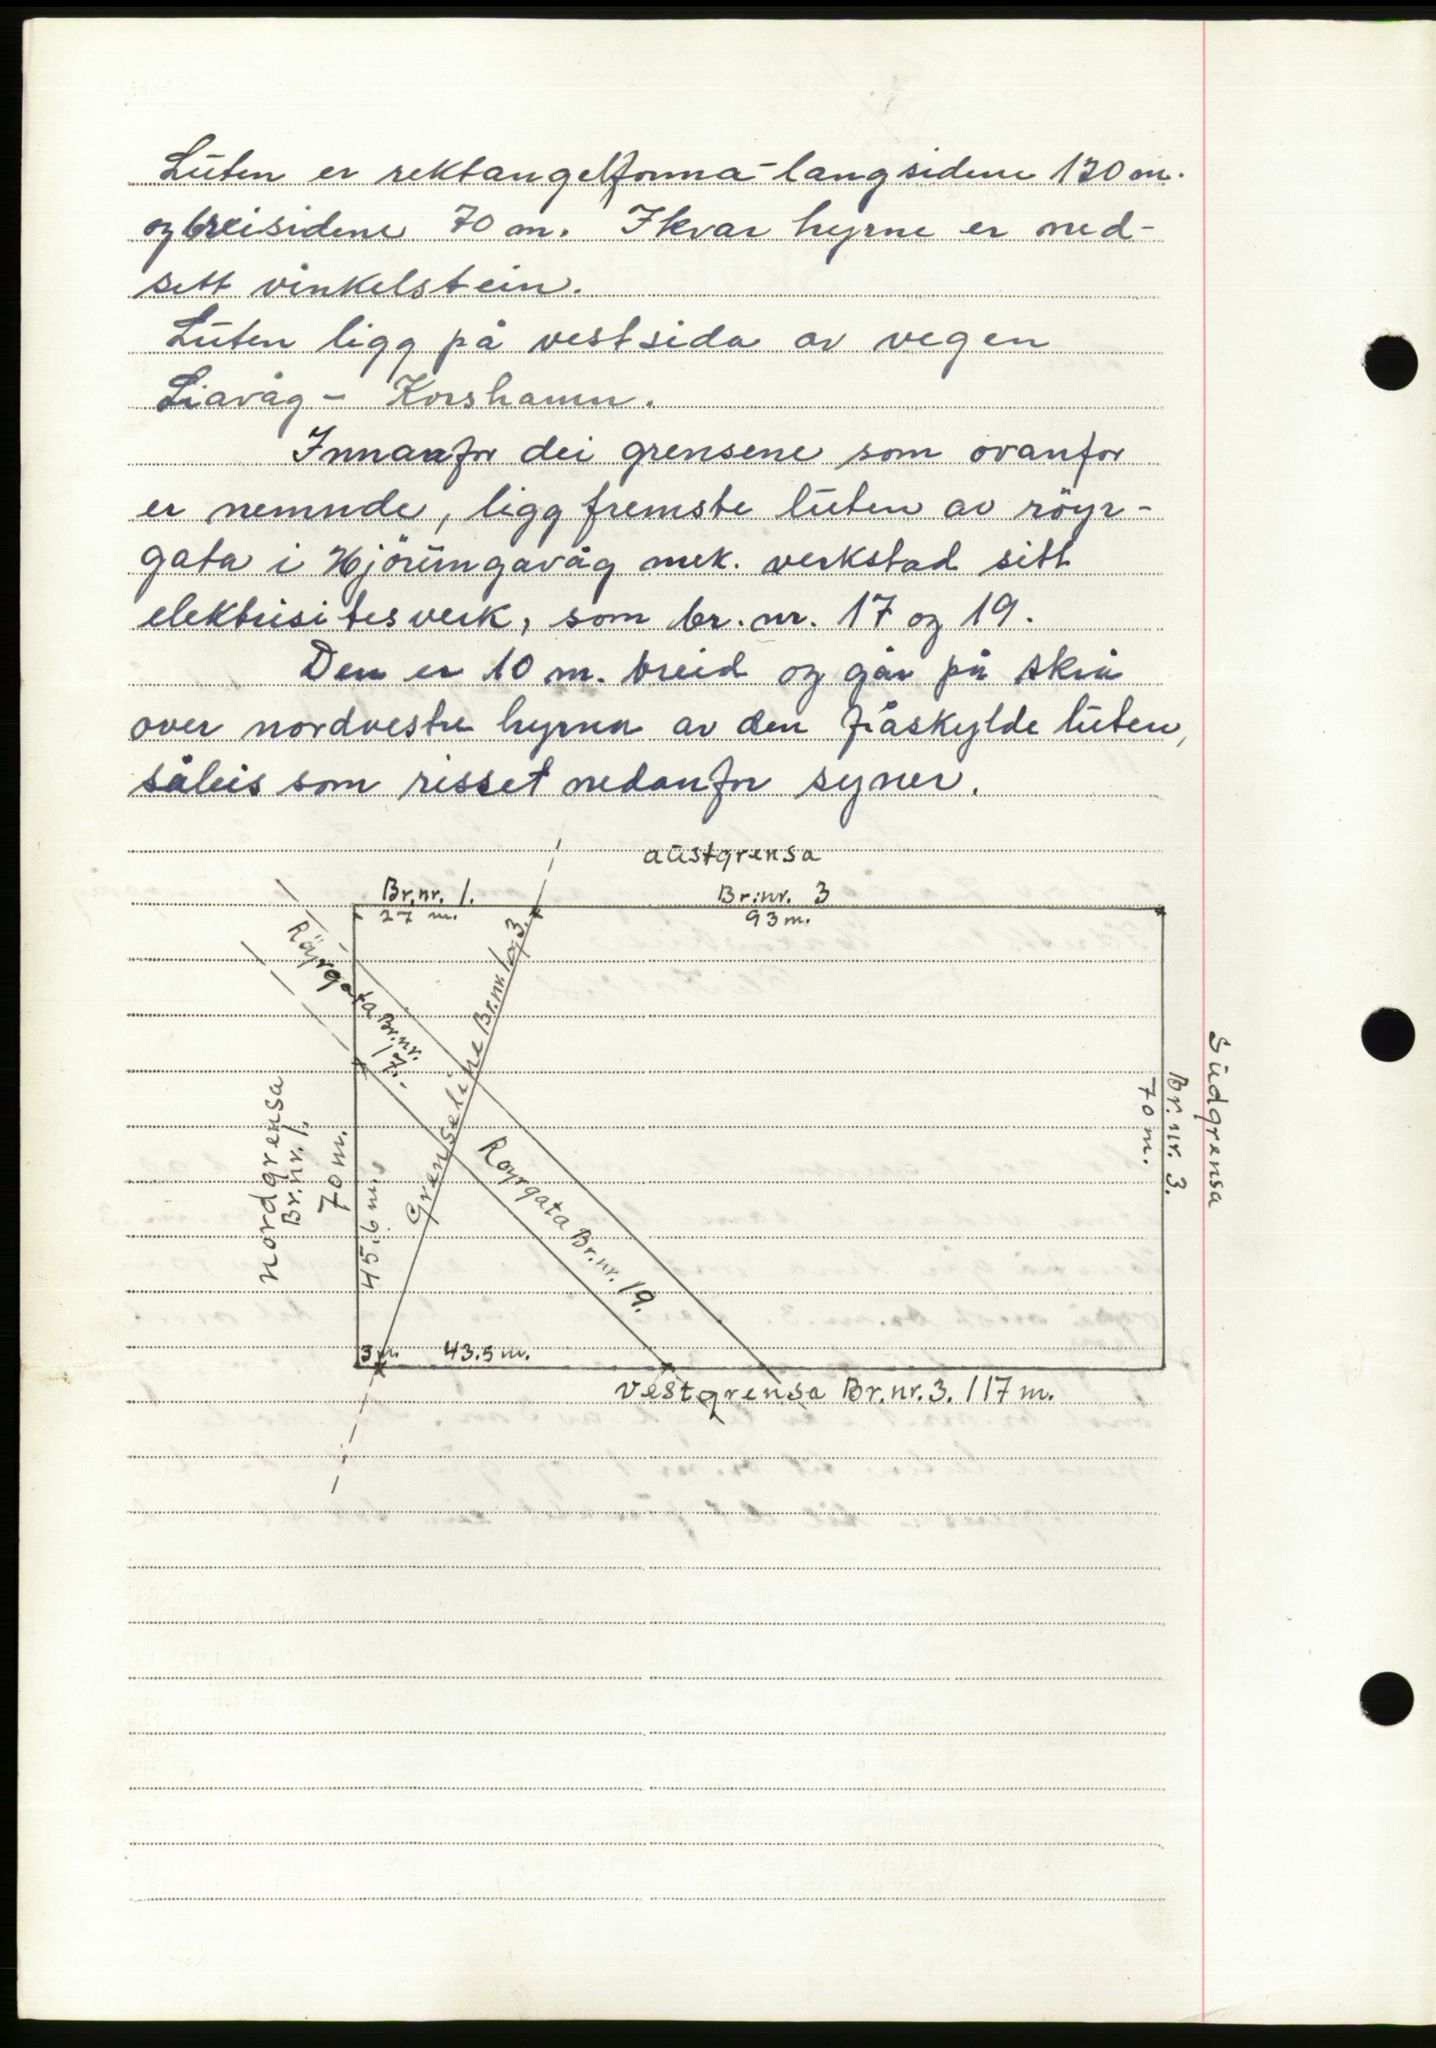 Luten er rektangelforma - langsidene 120 m.
og breisidene 70 m. I kvar hyrne er ned-
sett vinkelstein.
Luten ligg på vestsida av vegen
Liavåg - Korshamn.
Innanfor dei grensene som ovanfor
er nemnde, ligg fremste luten av röyr-
gata i Hjörungavåg mek. verkstad sitt
elektrisitesverk, som br. nr. 17 og 19.
Den er 10 m. breid og går på skrå
over nordvestre hyrna av den fråskylde luten,
såleis som risset nedanfor syner.
austgrensa
Br.nr. 1.
Br.nr. 3
27 m.
93 m.
Röyrgata Br.nr.
17.-
Grenseline Br.nr. 1 og 3.
Nordgrensa
Br.nr. 1.
70 m.
45.6 m.
Royrgata Br.nr. 19.
Südgrensa
Br. nr. 3.
70 m.
3 m.
43.5 m.
Vestgrensa Br.nr. 3. 117 m.